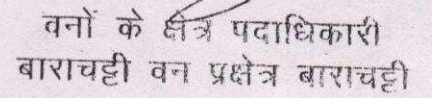 वनों के क्षेत्र पदाधिकारी
बाराचट्टी वन प्रक्षेत्र बाराचट्टी